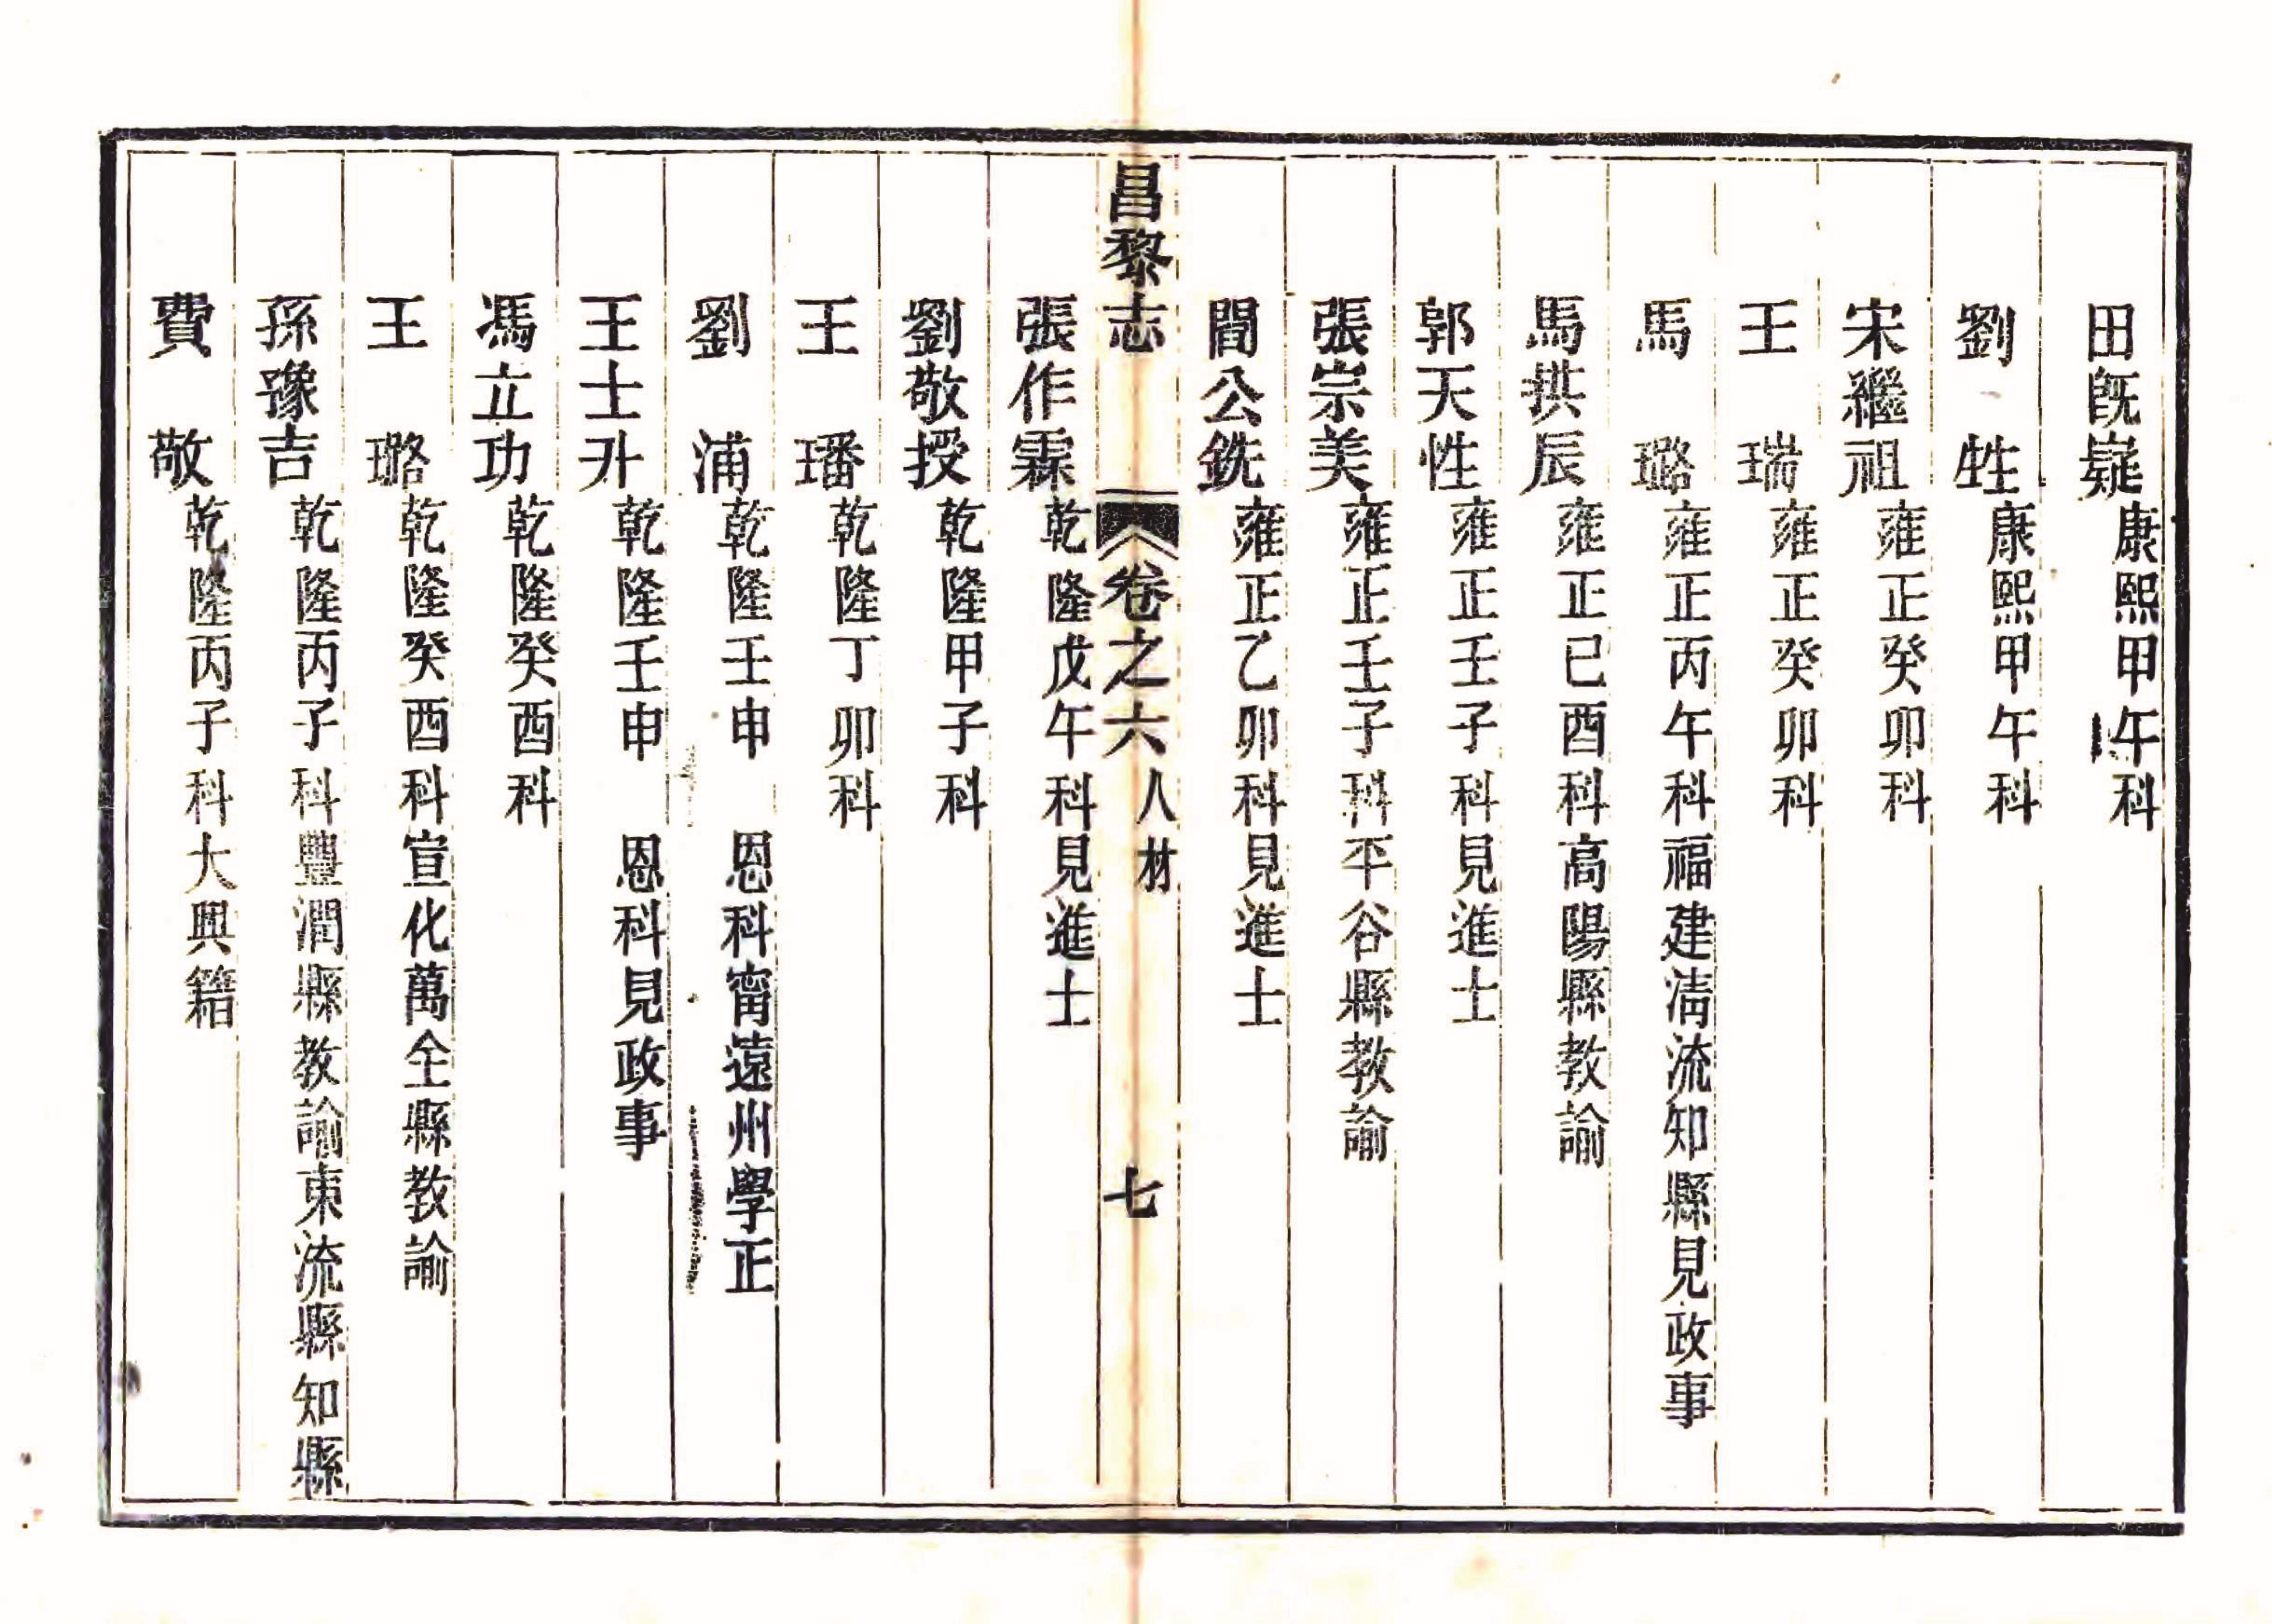 田既嶷康熙甲午科
劉　甡康熙甲午科
宋繼祖雍正癸卯科
王　瑞雍正癸卯科
馬　璐雍正丙午科福建淸流知縣見政事
馬拱辰雍正已酉科高陽縣教諭
郭天性雍正壬子科見進士
張崇美雍正壬子科平谷縣教諭
閻公銑雍正乙卯科見進士
昌黎志　卷之六　人材　七
張作霖乾隆戊午科見進士
劉敬授乾隆甲子科
王　璠乾隆丁卯科
劉　浦乾隆壬申　恩科甯遠州學正
王士升乾隆壬申　恩科見政事
馮立功乾隆癸酉科
王　璐乾隆癸酉科宣化萬全縣教諭
孫豫吉乾隆丙子科豐潤縣教諭東流縣知縣
費　敬乾隆丙子科大興籍